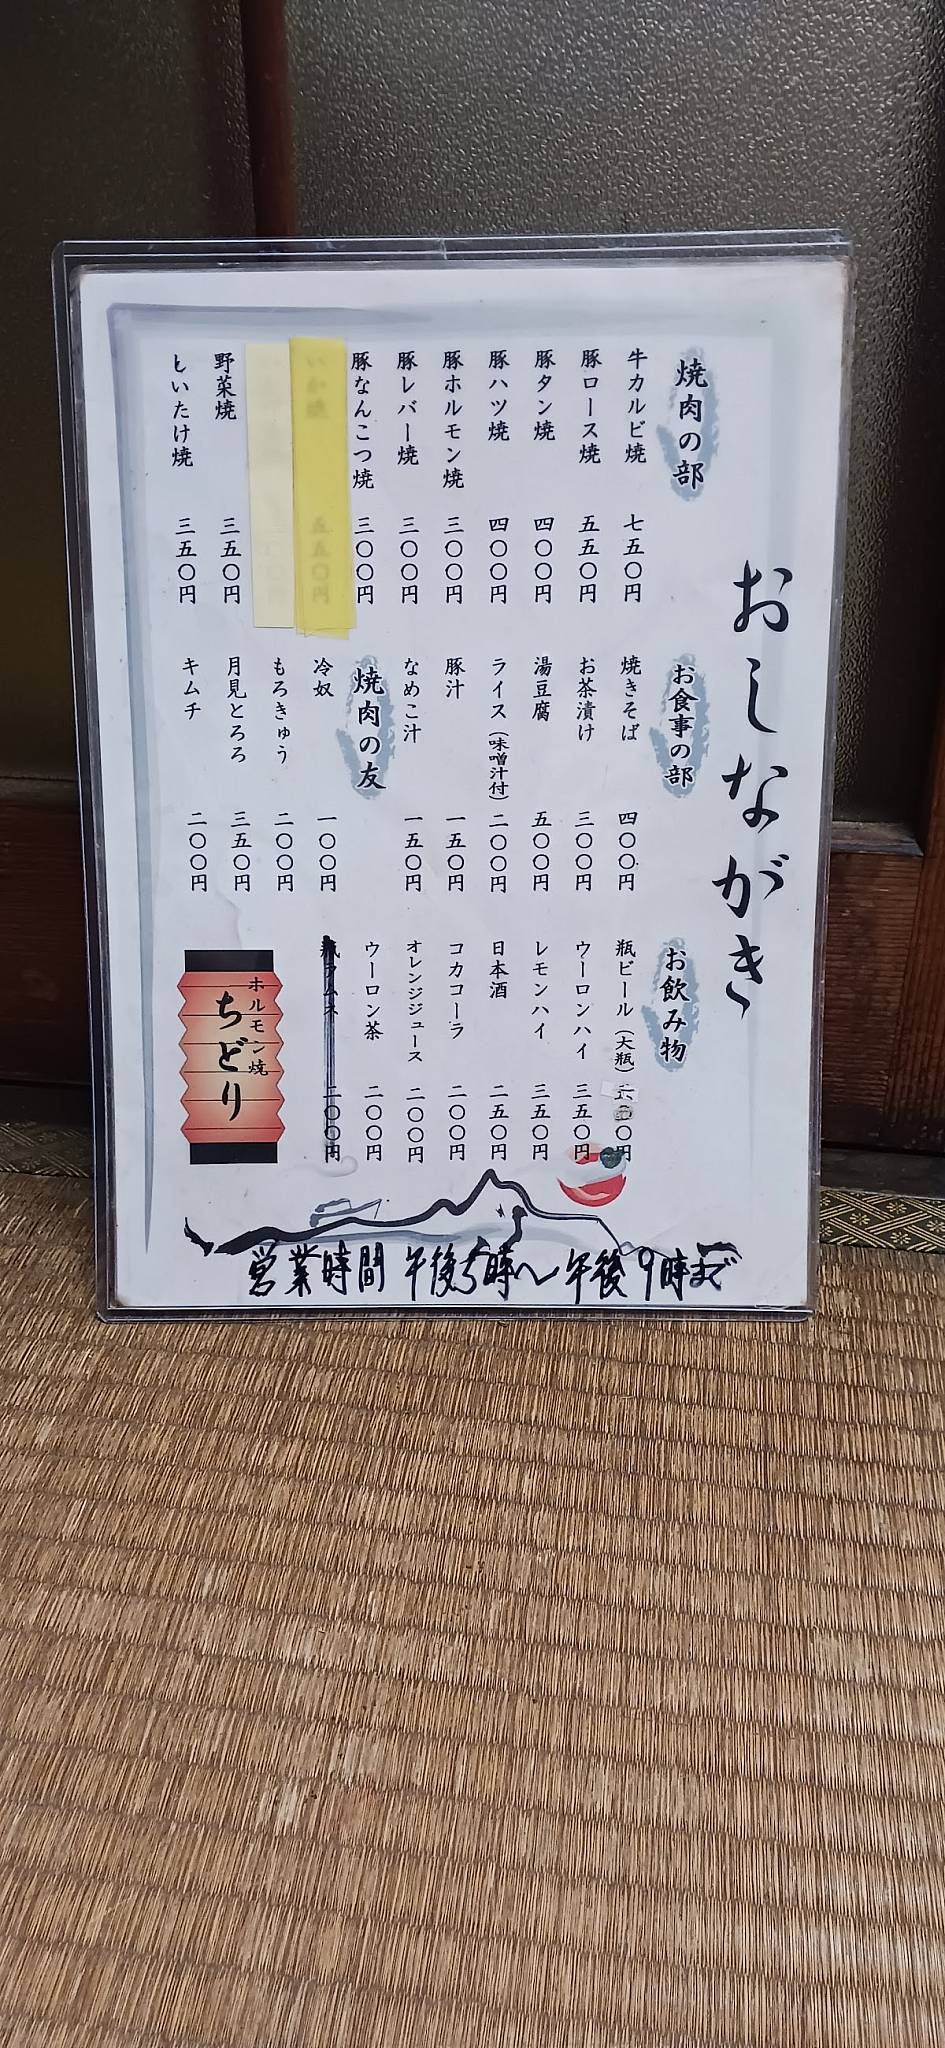 おしながき
焼肉の部
牛カルビ焼 七五〇円
豚ロース焼 五五〇円
豚タン焼 四〇〇円
豚ハツ焼 四〇〇円
豚ホルモン焼 三〇〇円
豚レバー焼 三〇〇円
豚なんこつ焼 三〇〇円
いか焼 五五〇円
野菜焼 三五〇円
しいたけ焼 三五〇円
お食事の部
焼きそば 四〇〇円
お茶漬け 三〇〇円
湯豆腐 五〇〇円
ライス（味噌汁付） 二〇〇円
豚汁 一五〇円
なめこ汁 一五〇円
焼肉の友
冷奴 一〇〇円
もろきゅう 二〇〇円
月見とろろ 三五〇円
キムチ 二〇〇円
お飲み物
瓶ビール（大瓶） 〇円
ウーロンハイ 三五〇円
レモンハイ 三五〇円
日本酒 二五〇円
コカコーラ 二〇〇円
オレンジジュース 二〇〇円
ウーロン茶 二〇〇円
瓶ラムネ 二〇〇円
ホルモン焼
ちどり
営業時間 午後5時〜午後9時まで